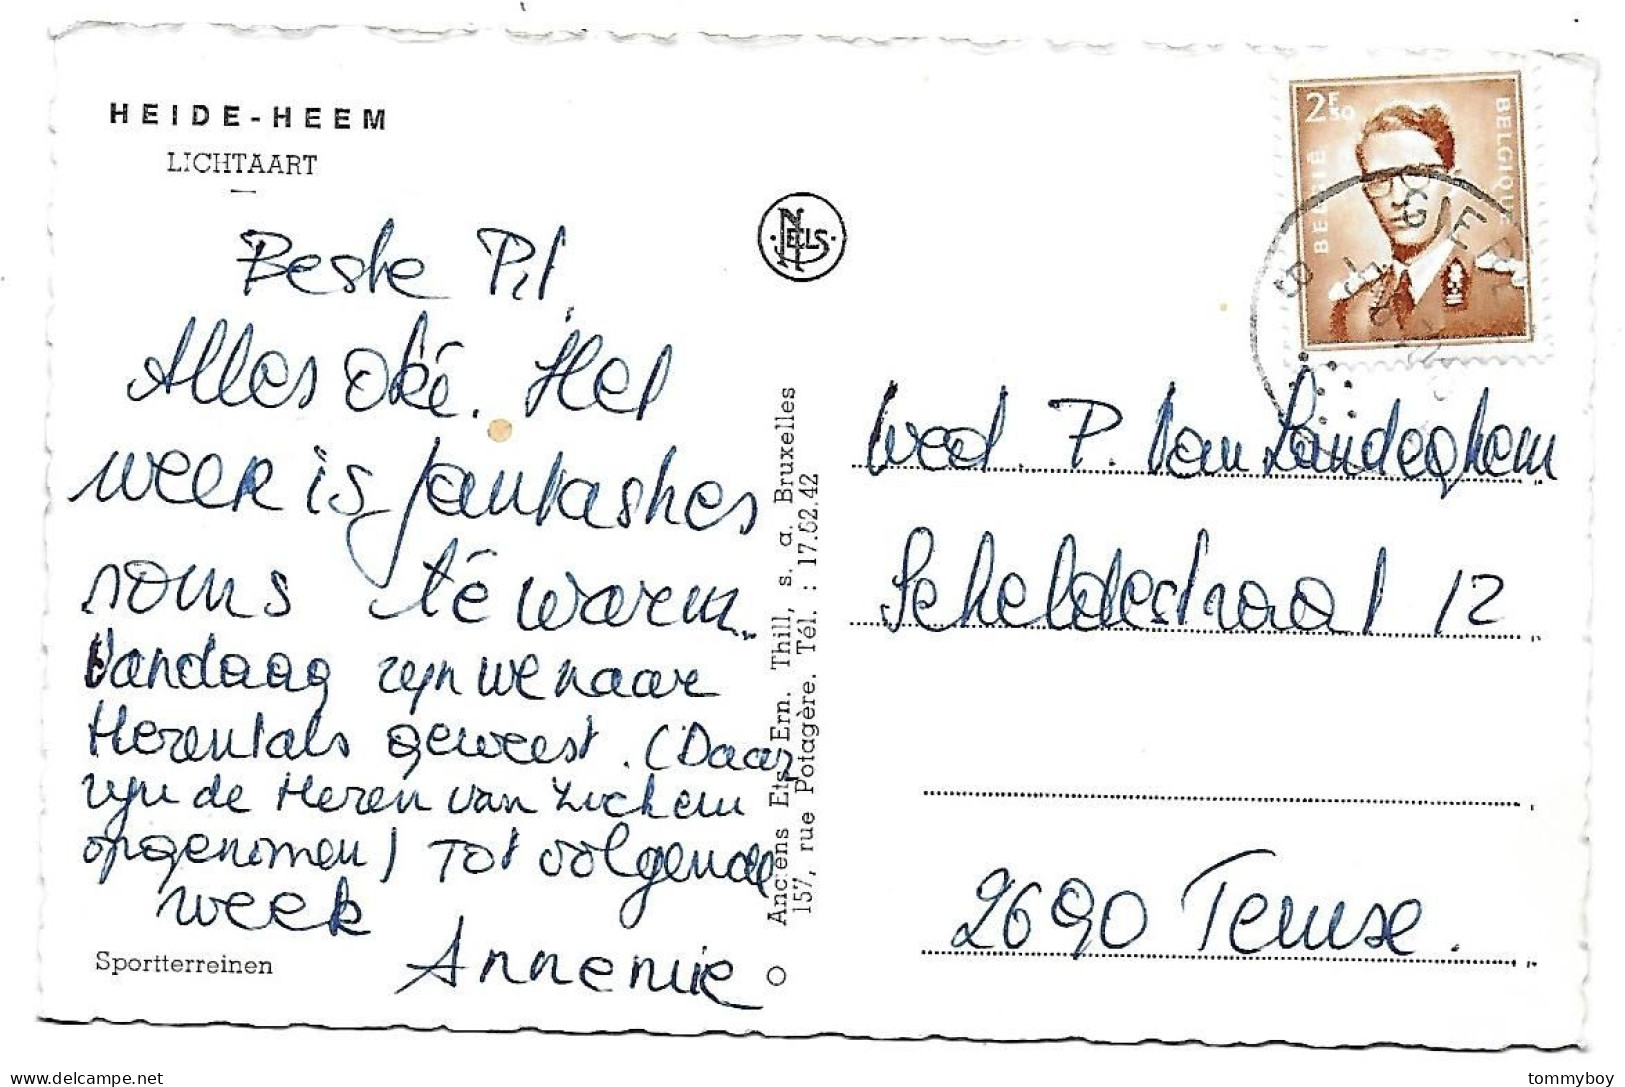 HEIDE-HEEM
LICHTAART
Beste Pit,
Alles oké. Het
weer is fantastisch
soms té warm.
Vandaag zijn we naar
Herentals geweest. (Daar
zijn de Heren van Zichem
opgenomen) Tot volgende
week
Annemie
Sportterreinen
NELS
Anciens Ets Ern. Thill, s. a. Bruxelles
157, rue Potagère. Tél. : 17.62.42
2F50
BELGIË
BELGIQUE
Wed. P. Van Landeghem
Scheldestraat 12
2690 Temse.
tommyboy
delcampe.net